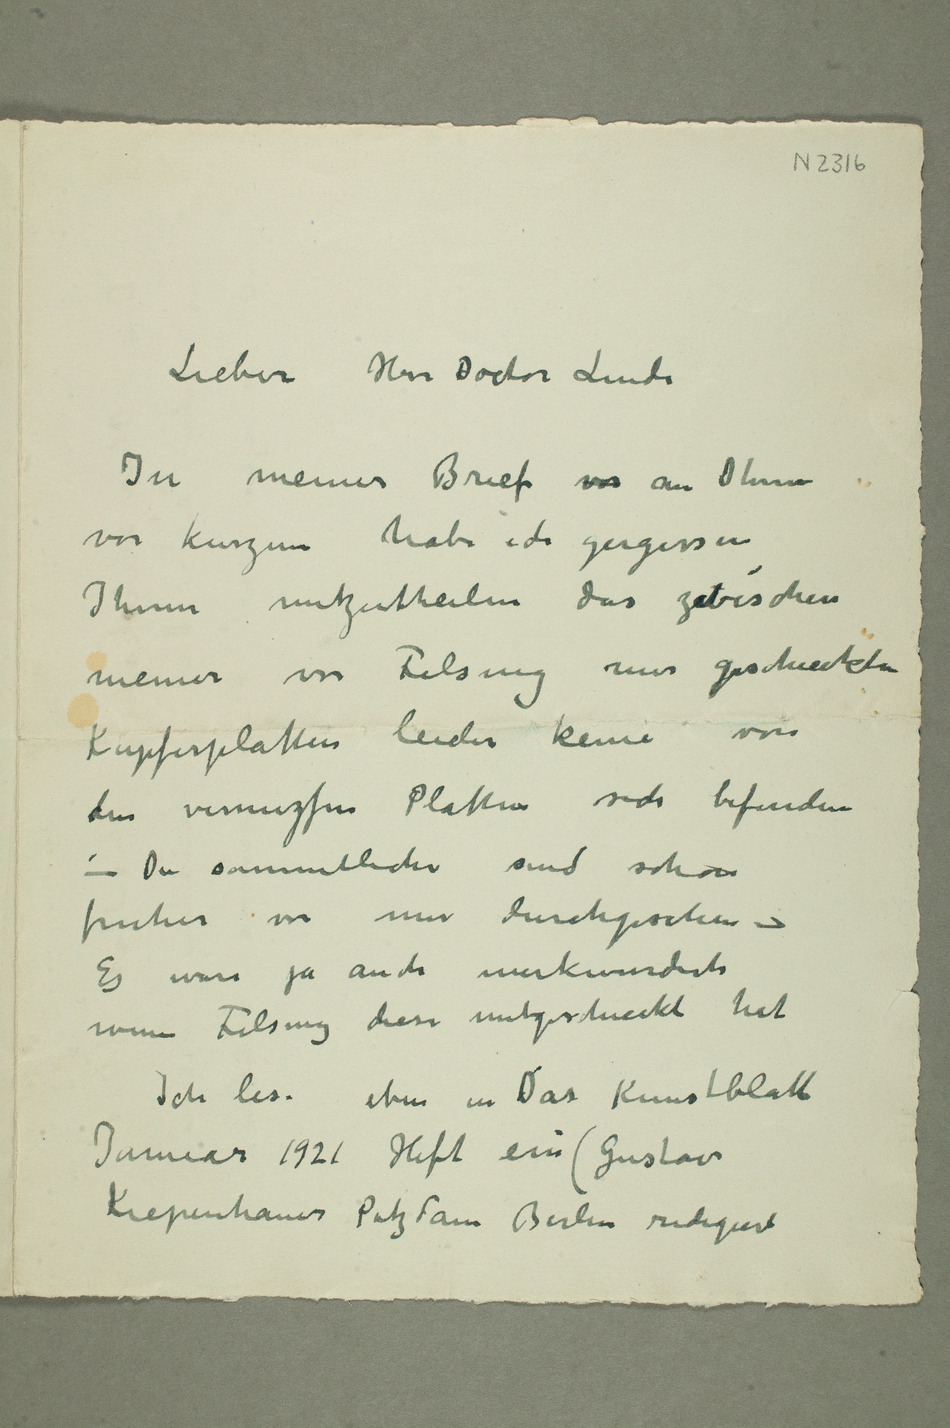 N 2316
Lieber Herr Doctor Linde
In meiner Brief an Ihnen
vor kurzem habe ich gergessen
Ihnen mitzutheilen das zwischen
meiner von Felsing mir geschickten
Kupferplatten leider keine von
den Platten sich befinden
– Die sammtliche sind schon
früher von mir durchgesehen –
Es ware ja auch merkwurdich
wenn Felsing diese mitgeschickt hat
Ich lese eben in Das Kunstblatt
Januar 1921 Heft ein (Gustav
Kiepenhauer Potzdam Berlin redigiert